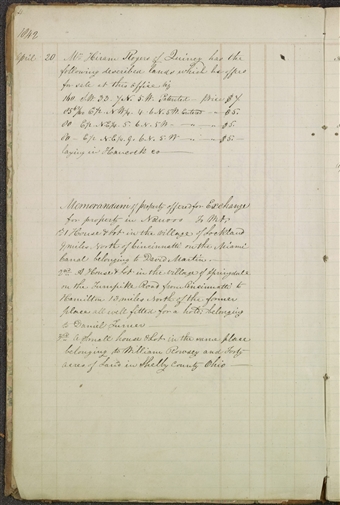 1842
April 20 Mr Hiram Rogers of Quincy has the
following described lands which he offers
for sale at this office viz
160 S.W. 33. 7 N. 5 W. Patented — Price $7
E½ N.W. 4. 6. N. 5 W. — $5
80 E½ N.E. 5. 6. N. 5 W — $5
80 — E½ N.E. 9. 6. N. 5 W — $5
laying in Hancock co —
Memorandum of property offered for Exchange
for property in
1st House & Lot in the village of Lockland
miles North of Cincinnatti on the Miami
Canal belonging to David Martin
2nd A House & Lot in the village of Springdale
on the Turnpike Road from Cincinnatti to
Hamilton 13 miles North of the former
place all well fitted for a hotel belonging
to Daniel Turner
3rd A Small house & Lot in the same place
belonging to William Rowsey and Forty
acres of Land in Shelby County Ohio —